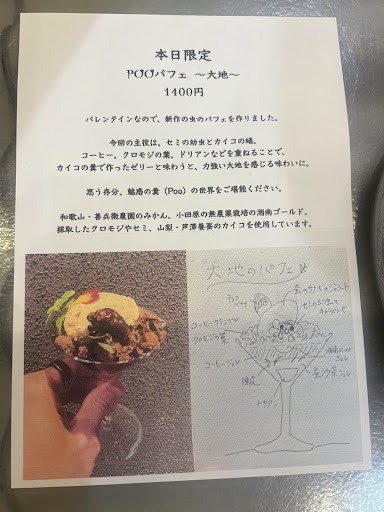 本日限定
POOパフェ ～大地～
1400円
バレンタインなので、新作の虫のパフェを作りました。
今回の主役は、セミの幼虫とカイコの蛹。
コーヒー、クロモジの葉、ドリアンなどを重ねることで、
カイコの糞で作ったゼリーと味わうと、力強い大地を感じる味わいに。
思う存分、魅惑の糞（Poo）の世界をご堪能ください。
和歌山・善兵衛農園のみかん、小田原の無農薬栽培の湘南ゴールド、
採取したクロモジやセミ、山梨・芦澤養蚕のカイコを使用しています。
大地のパフェ
チョコ
コーヒークランブル
クロモジの葉
コーヒージュレ
ドリアン